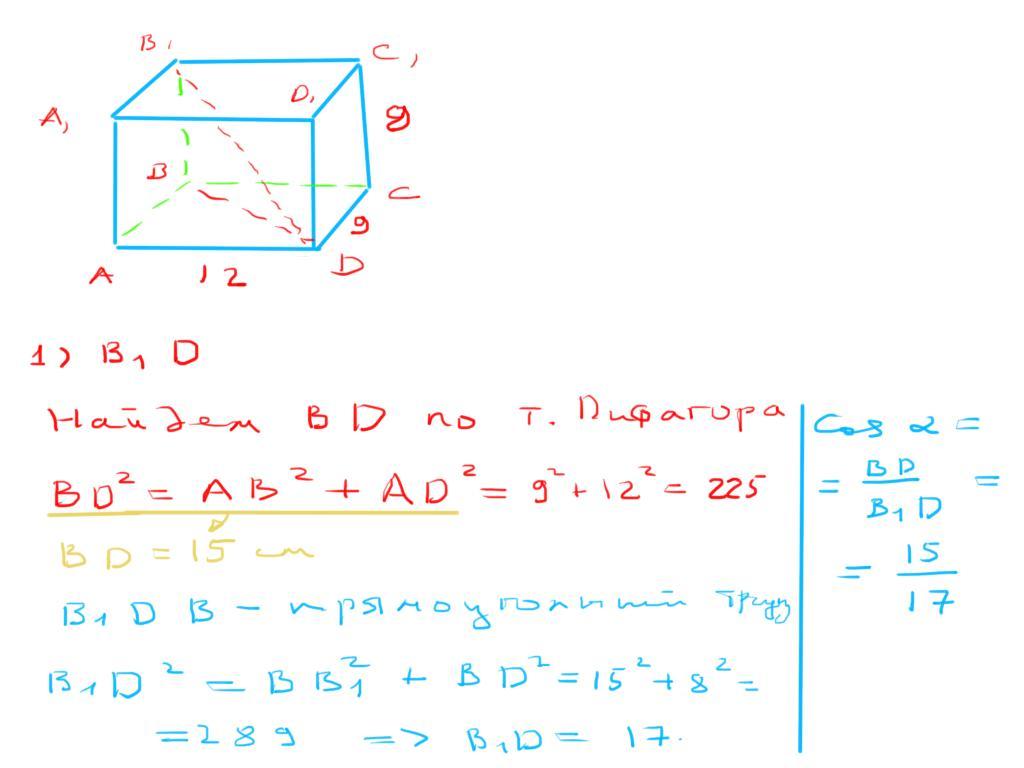 B₁
C₁
D₁
A₁
8
B
C
9
D
A
12
1) B₁ D
Найдем BD по т. Пифагора
BD² = AB² + AD² = 9² + 12² = 225
BD = 15 см
B₁DB – прямоугольный треуг
B₁D² = BB₁² + BD² = 15² + 8² =
= 289 => B₁D = 17.
Cos α =
= BD / B₁D =
= 15 / 17